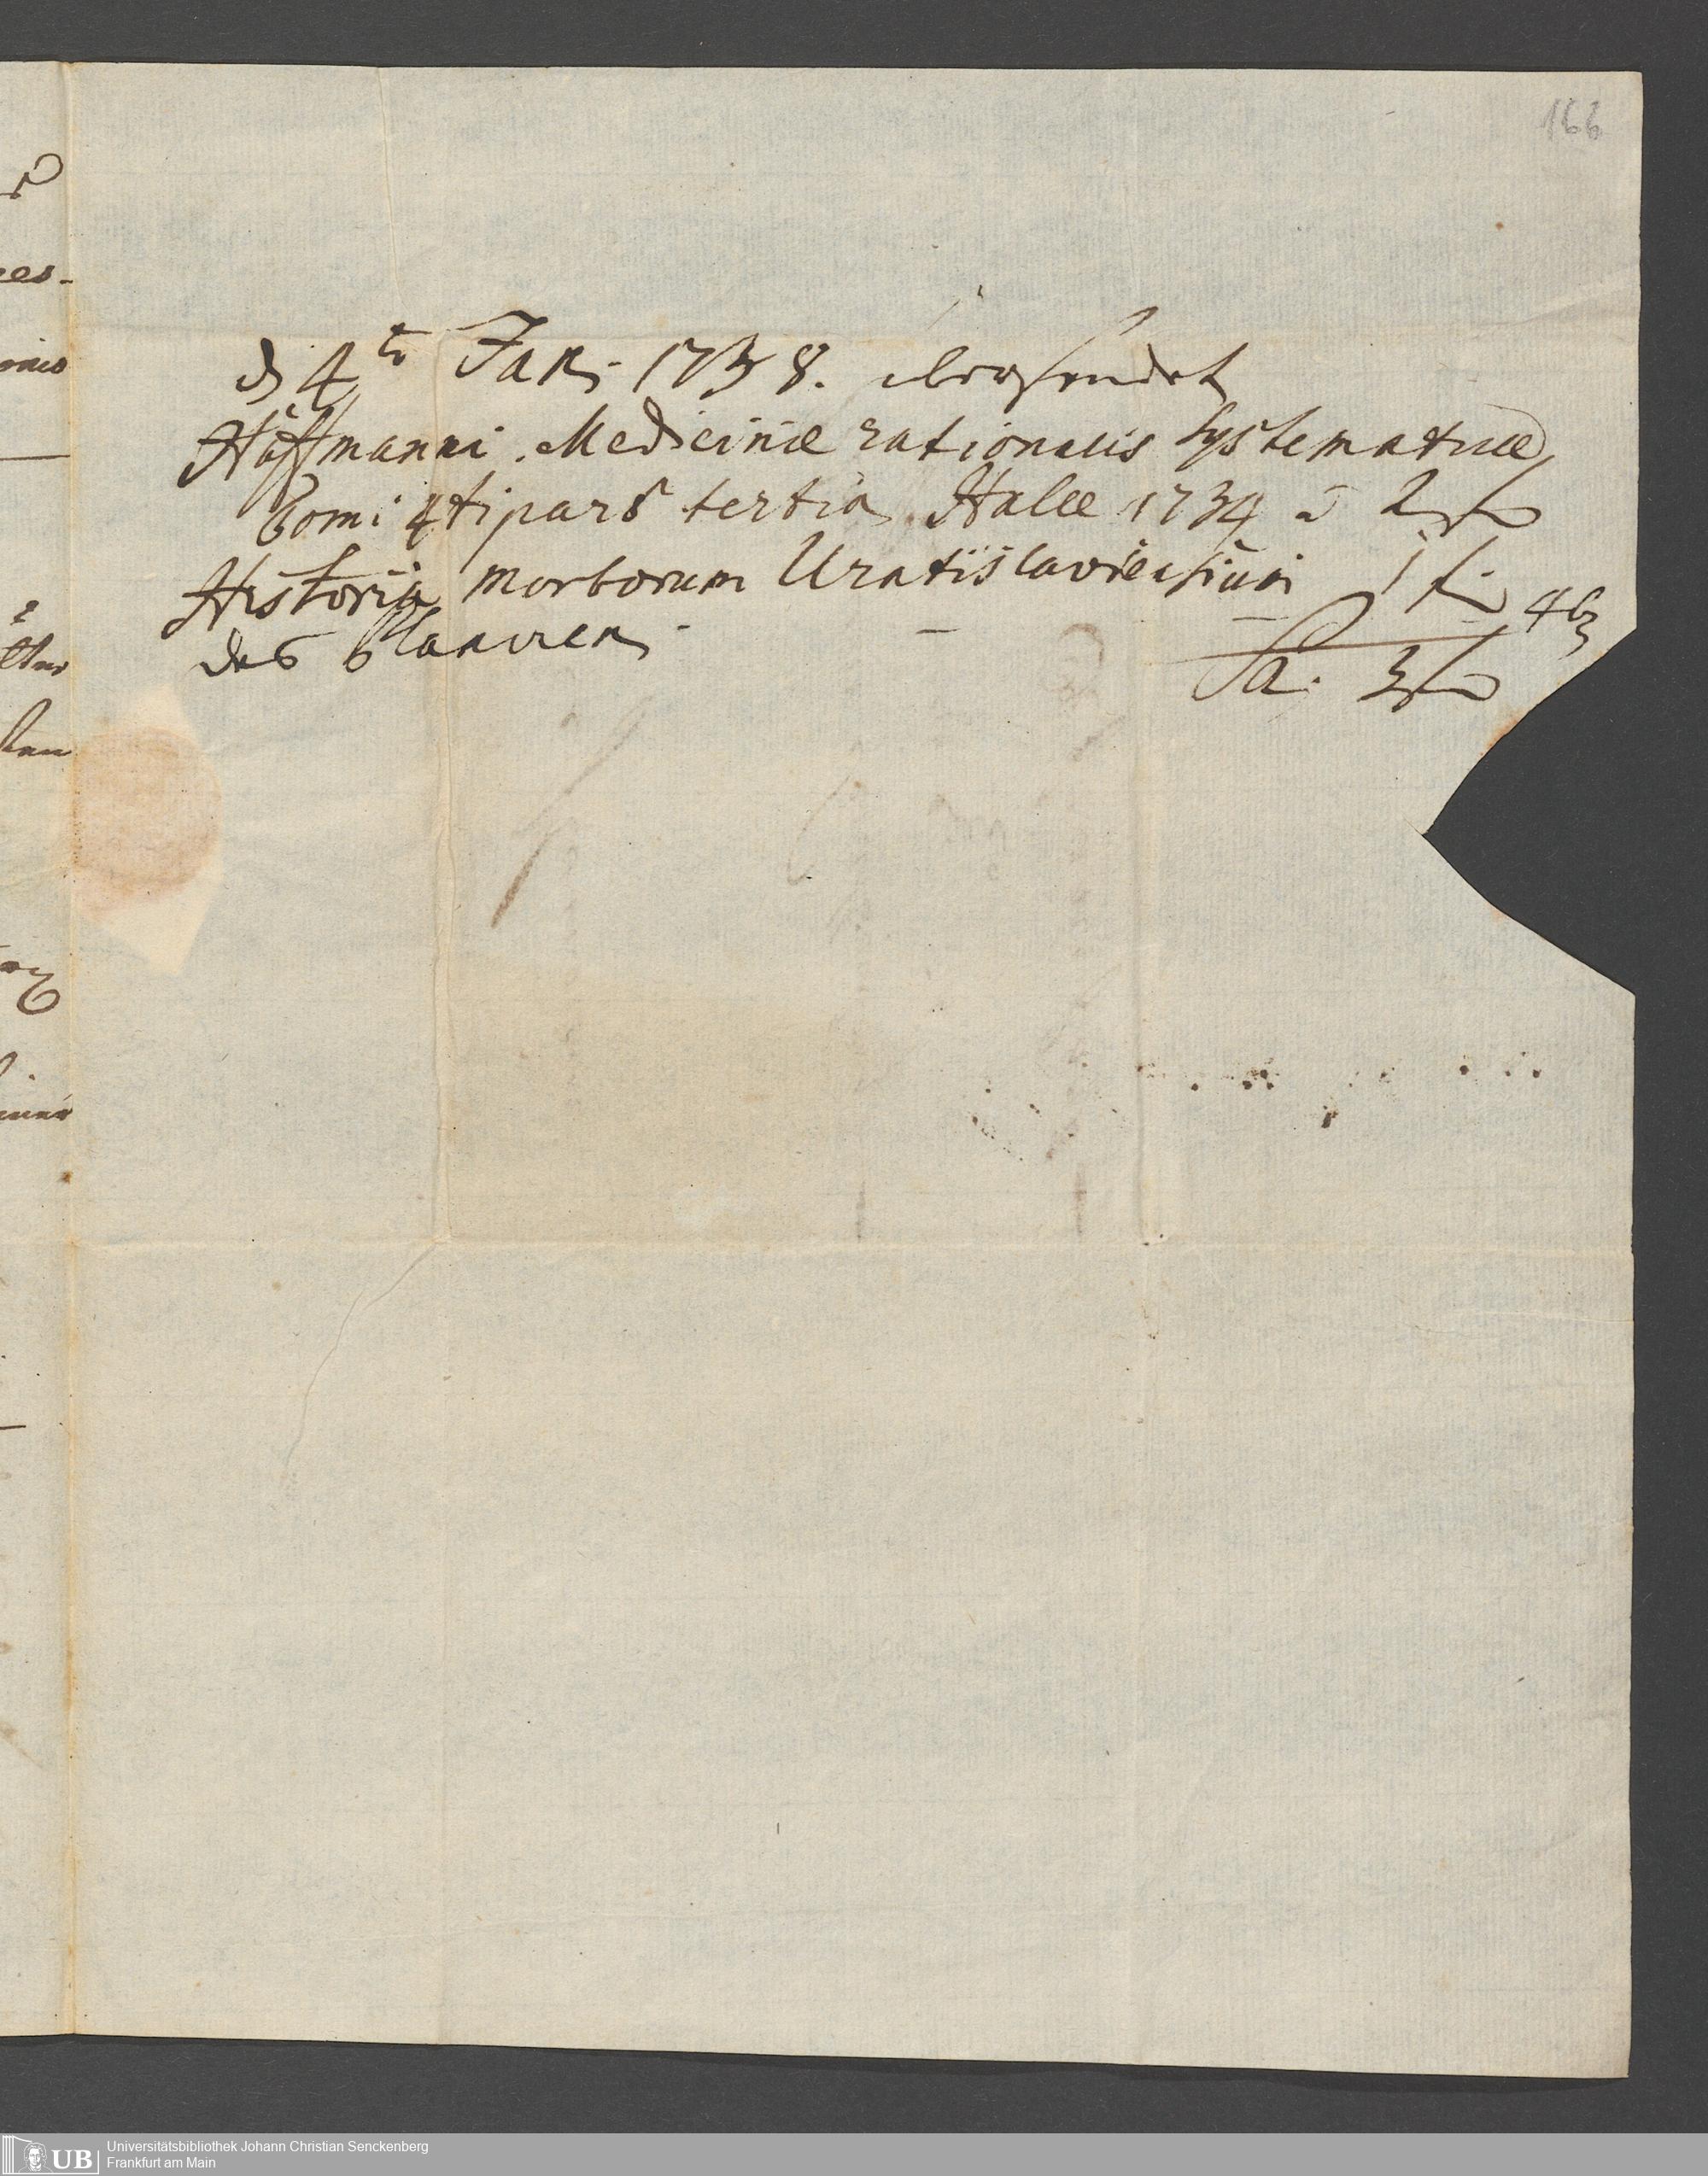 166
d 4ᵗᵉ Jan. 1738. übersendet
Hoffmanni. Medicinæ rationalis systematicæ
Tomi 4ti pars tertia Halæ 1734 à 2 fl
Historia morborum Uratislaviensium 1 fl.
des – – 4 bz
Sa. 3 fl
UB
Universitätsbibliothek Johann Christian Senckenberg
Frankfurt am Main